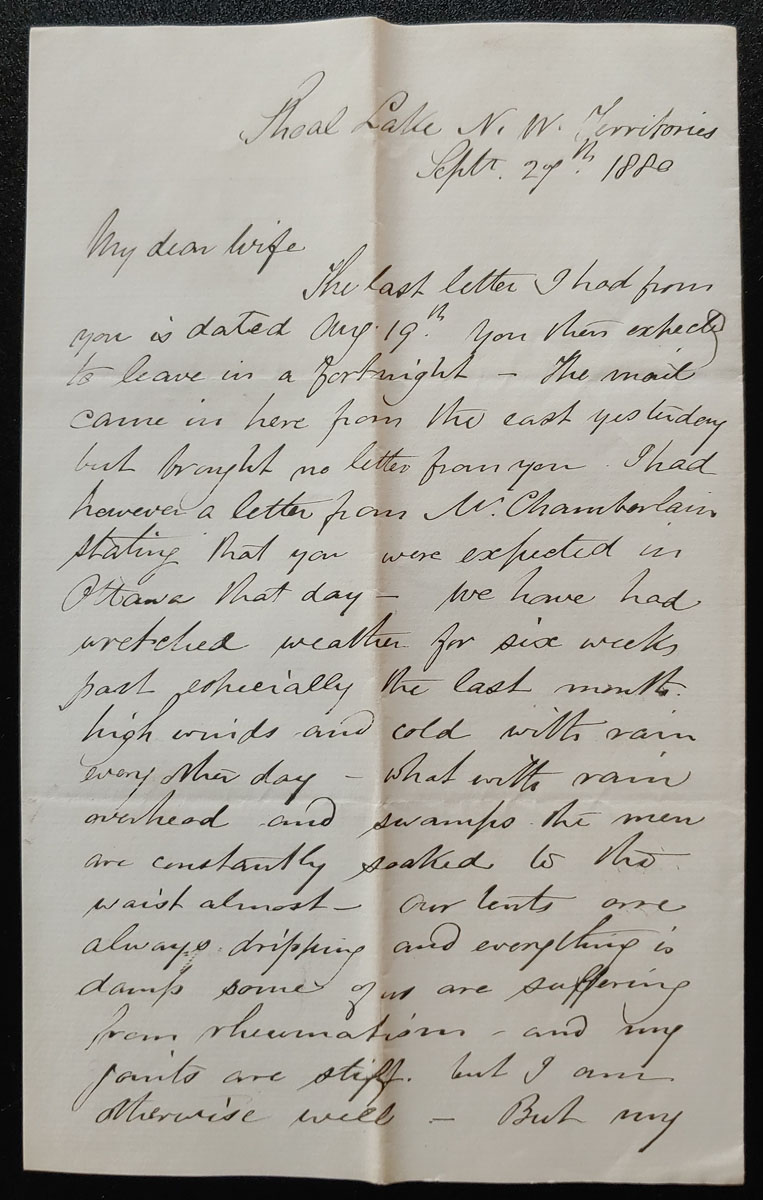 Shoal Lake N. W. Territories
Septr. 27th. 1880
My dear Wife
The last letter I had from
you is dated Aug. 19th. You then expected
to leave in a fortnight – The mail
came in here from the east yesterday
but brought no letter from you. I had
however a letter from Mr. Chamberlain
stating that you were expected in
Ottawa that day – We have had
wretched weather for six weeks
past especially the last month.
high winds and cold with rain
every other day – what with rain
overhead and swamps the men
are constantly soaked to the
waist almost – our tents are
always dripping and everything is
damp some of us are suffering
from rheumatism – and my
joints are stiff. but I am
otherwise well – But my